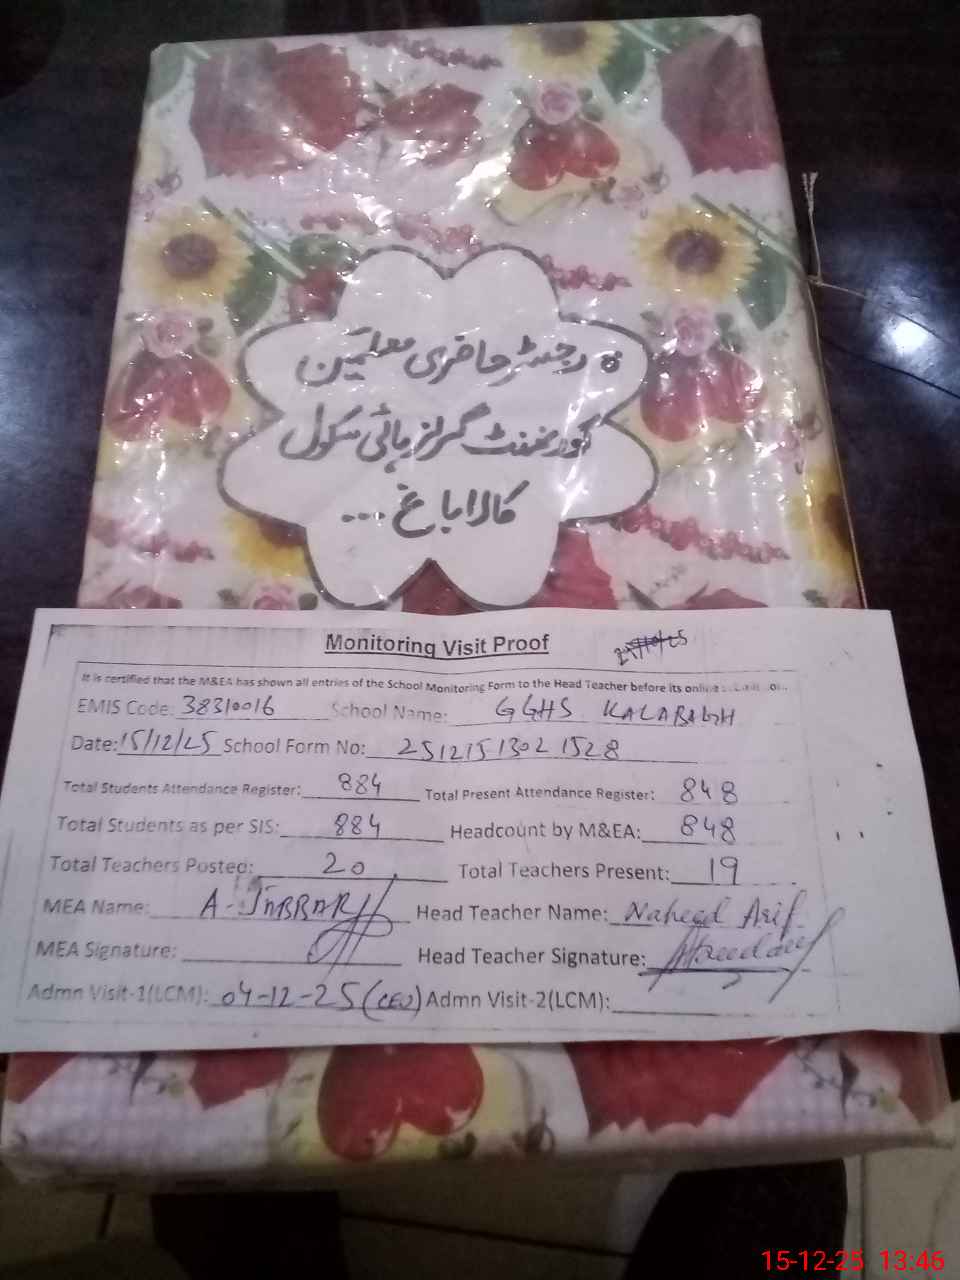 رجسٹر حاضری معلمین
گورنمنٹ گرلز ہائی سکول
کالاباغ ...
Monitoring Visit Proof
It is certified that the M&EA has shown all entries of the School Monitoring Form to the Head Teacher before its online
EMIS Code: 38310016 School Name: GGHS KALABAGH
Date: 15/12/25 School Form No: 25121513021528
Total Students Attendance Register: 884 Total Present Attendance Register: 848
Total Students as per SIS: 884 Headcount by M&EA: 848
Total Teachers Posted: 20 Total Teachers Present: 19
MEA Name: A-JABBAR Head Teacher Name: Naheed Arif
MEA Signature: Head Teacher Signature:
Admn Visit-1(LCM): 04-12-25 (CEO) Admn Visit-2(LCM):
15-12-25 13:46